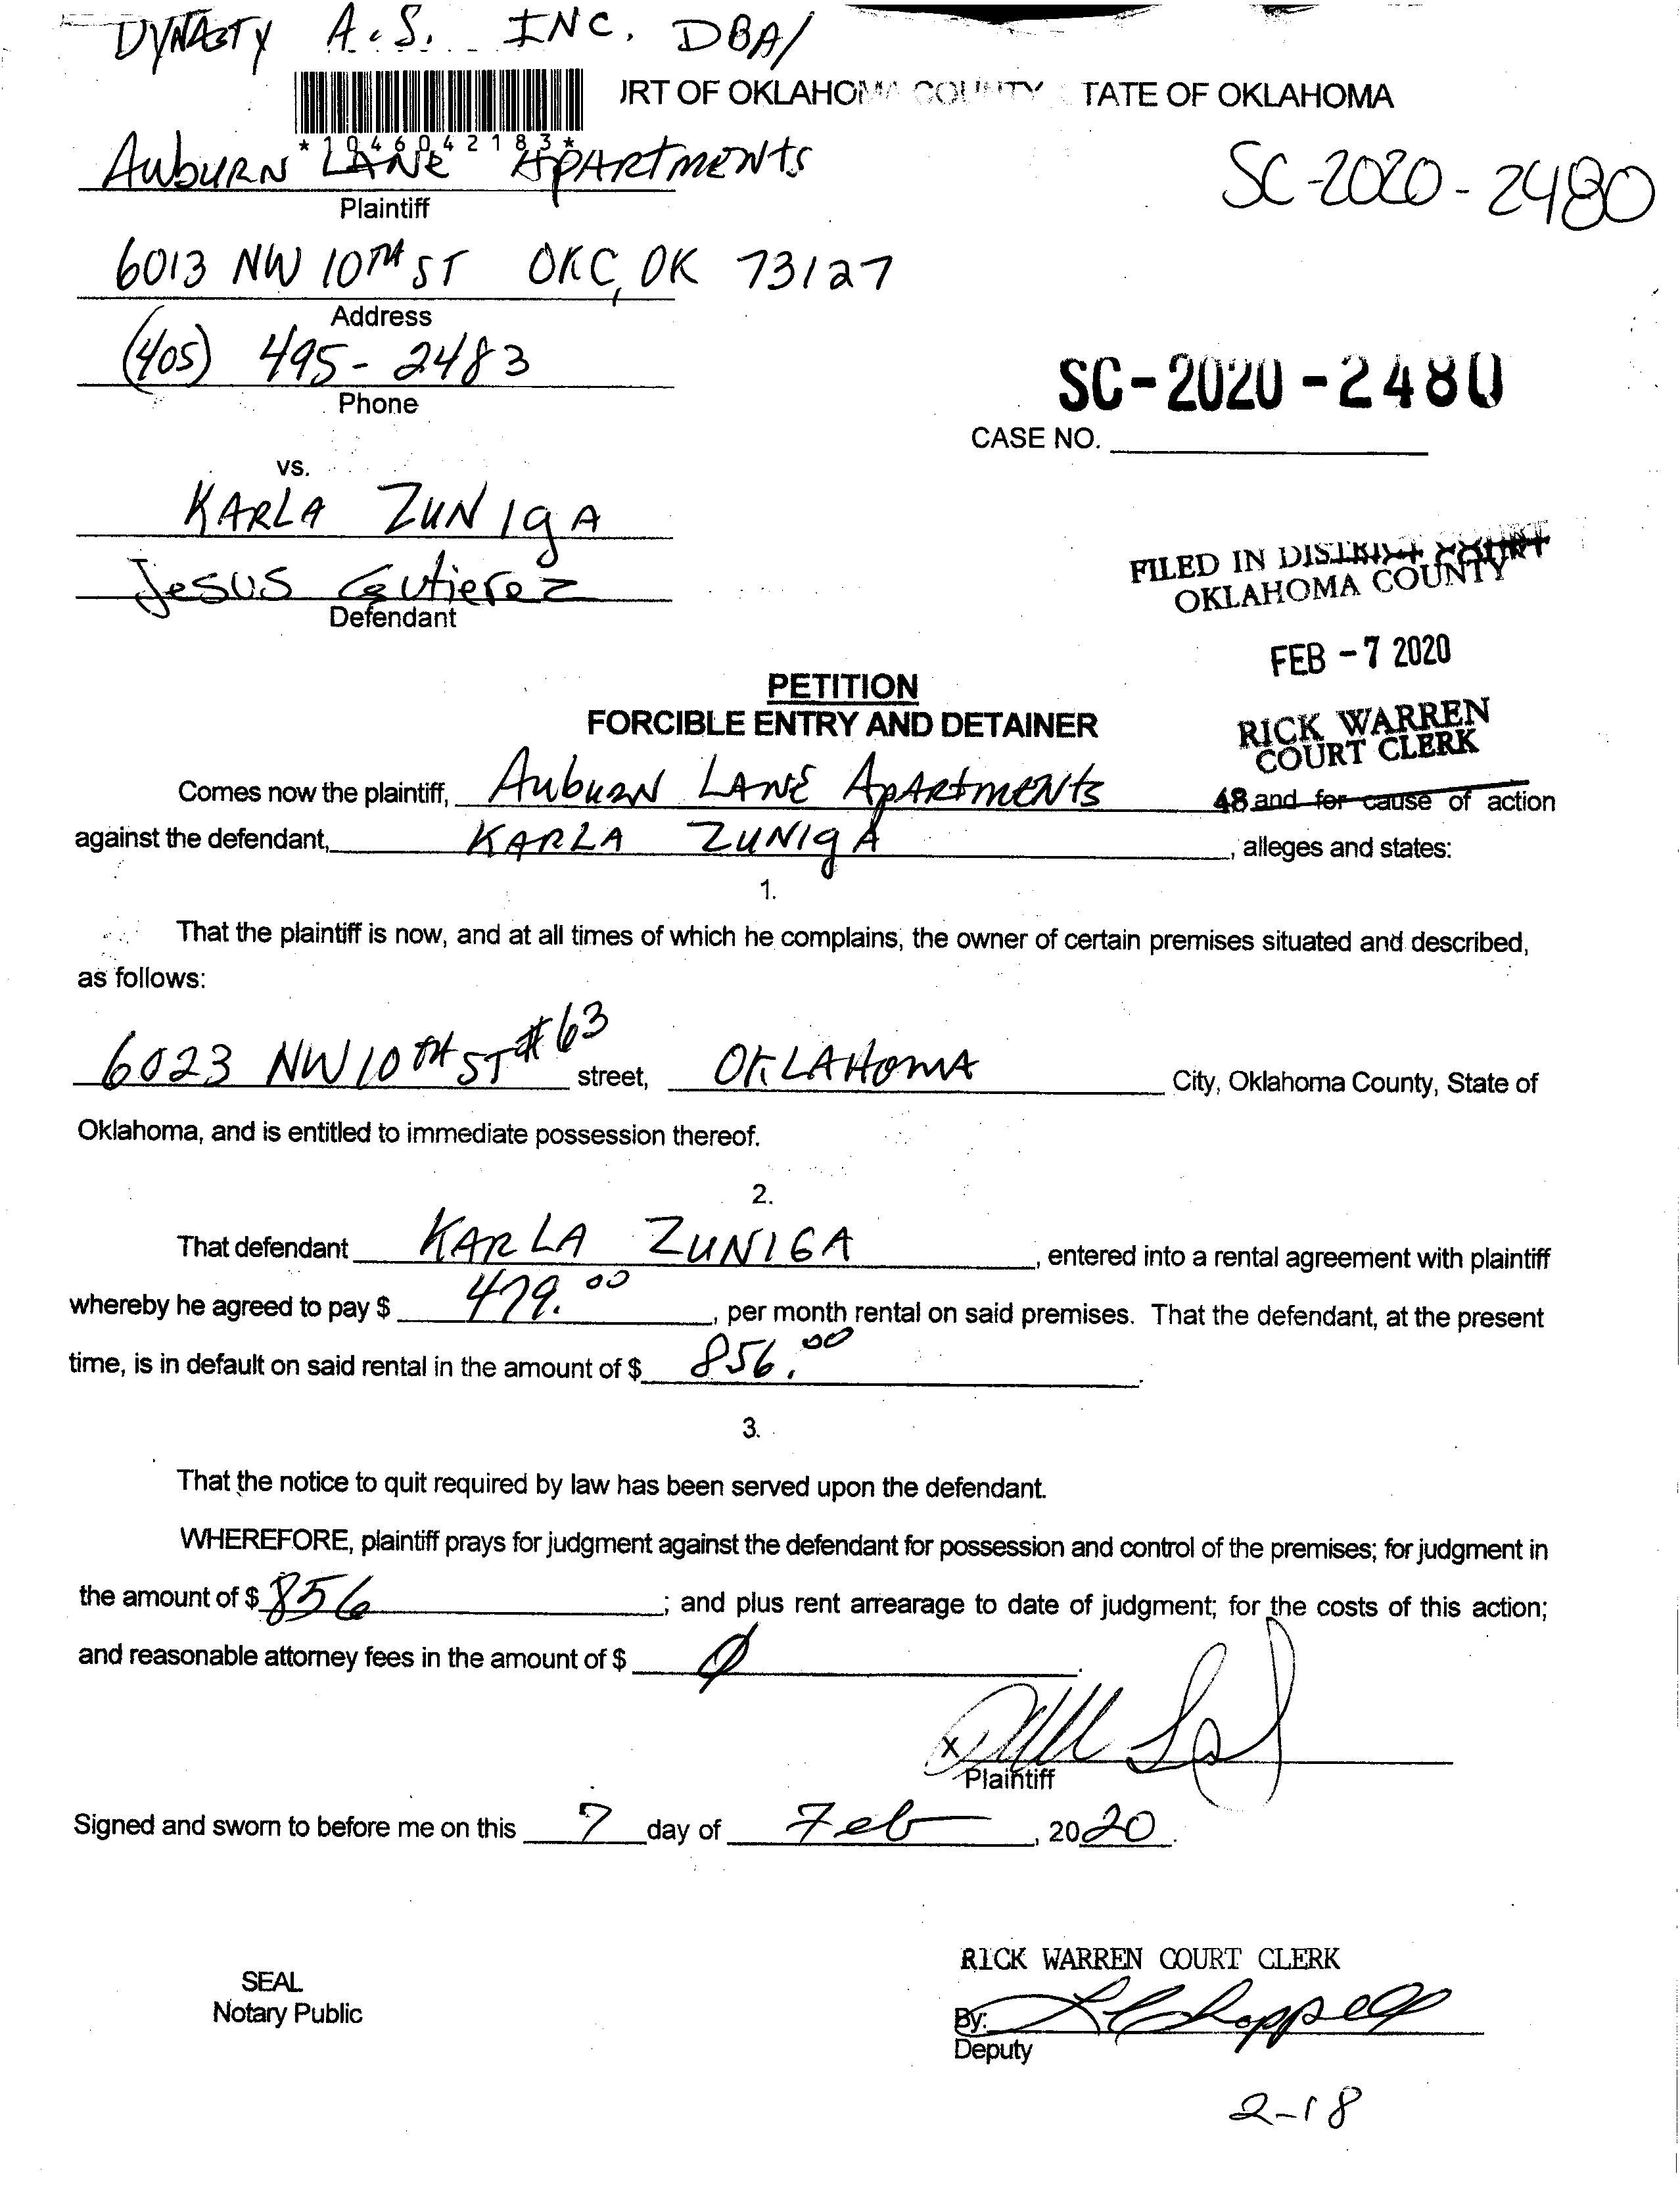 DYNASTY A.S. INC. DBA/
URT OF OKLAHOMA COUNTY STATE OF OKLAHOMA
*1046042183*
AUBURN LANE APARTMENTS
Plaintiff
SC-2020-2480
6013 NW 10TH ST OKC, OK 73127
Address
(405) 495-2483
Phone
SC-2020-2480
CASE NO.
vs.
KARLA ZUNIgA
Jesus Gutierez
Defendant
FILED IN DISTRICT COURT
OKLAHOMA COUNTY
FEB -7 2020
RICK WARREN
COURT CLERK
48
PETITION
FORCIBLE ENTRY AND DETAINER
Comes now the plaintiff, Auburn LANE ApARtmENts and for cause of action
against the defendant, KARLA ZUNIgA, alleges and states:
1.
That the plaintiff is now, and at all times of which he complains, the owner of certain premises situated and described,
as follows:
6023 NW 10TH ST #63 street, OKLAHOMA City, Oklahoma County, State of
Oklahoma, and is entitled to immediate possession thereof.
2.
That defendant KARLA ZUNIGA, entered into a rental agreement with plaintiff
whereby he agreed to pay $ 479.00, per month rental on said premises. That the defendant, at the present
time, is in default on said rental in the amount of $ 856.00.
3.
That the notice to quit required by law has been served upon the defendant.
WHEREFORE, plaintiff prays for judgment against the defendant for possession and control of the premises; for judgment in
the amount of $ 856; and plus rent arrearage to date of judgment; for the costs of this action;
and reasonable attorney fees in the amount of $ Ø.
X
Plaintiff
Signed and sworn to before me on this 7 day of Feb, 2020.
RICK WARREN COURT CLERK
SEAL
Notary Public
By:
Deputy
2-18